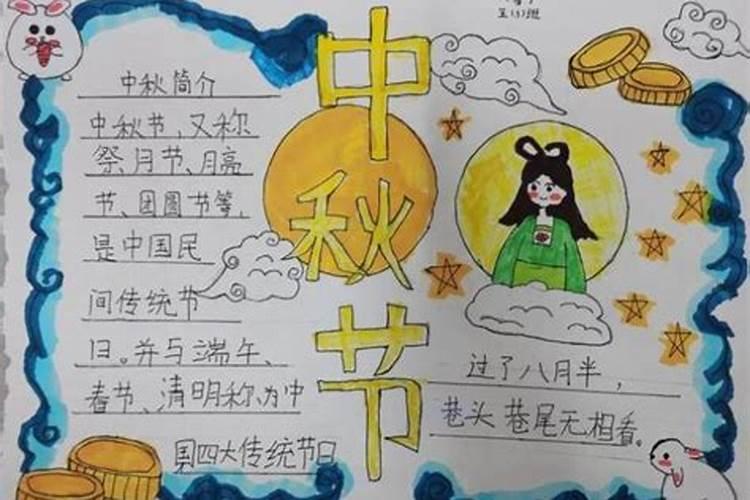 五(1)班
中秋节
中秋简介
中秋节、又称
祭月节、月亮
节、团圆节等，
是中国民
间传统节
日。并与端午、
春节、清明称为中
国四大传统节日
过了八月半，
巷头巷尾无相看。